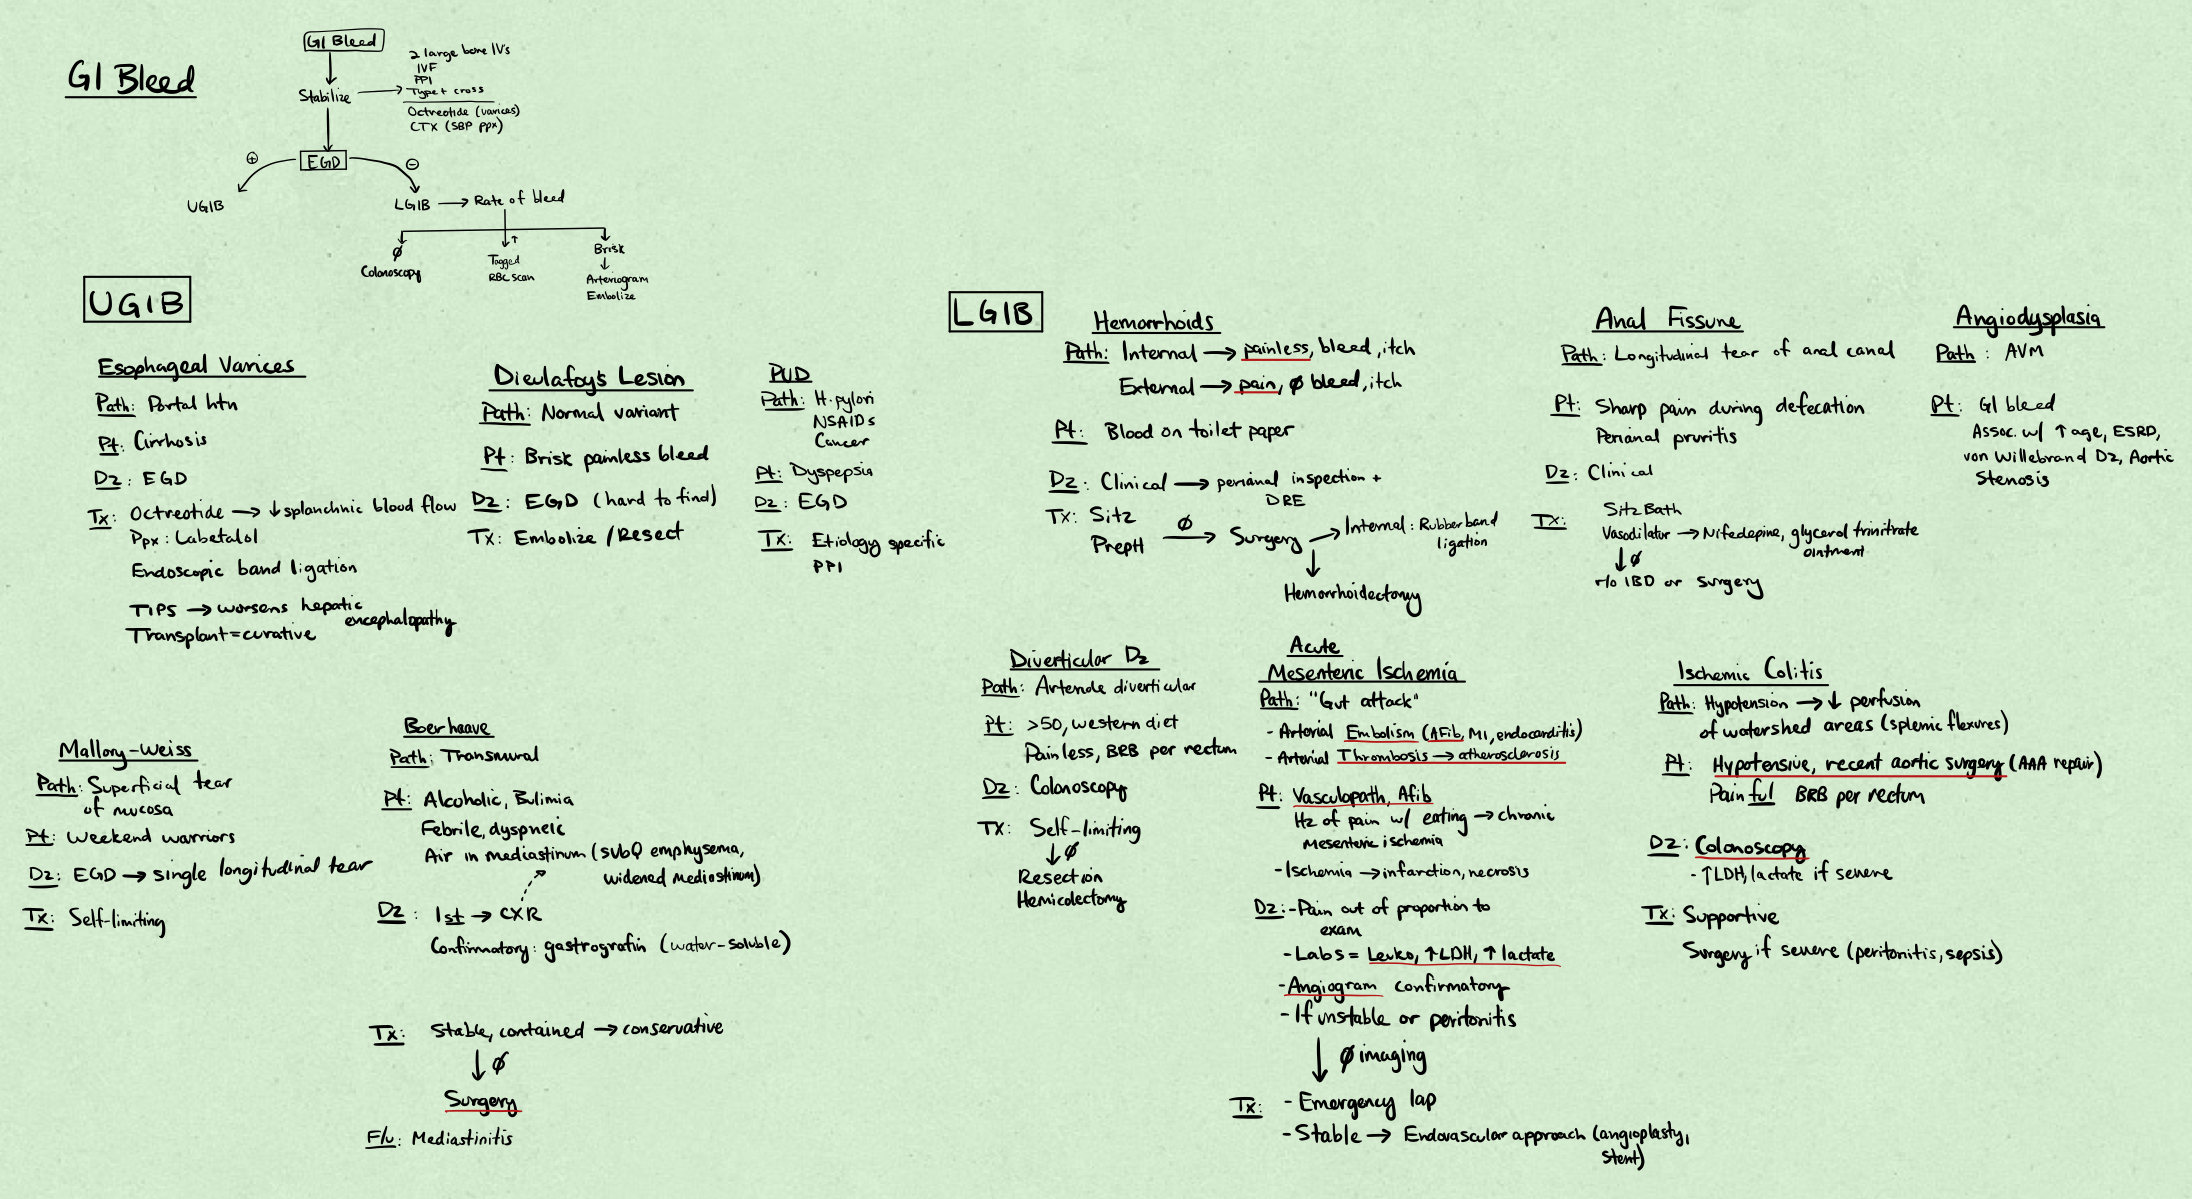 GI Bleed
GI Bleed
2 large bone IV's
IVF
PPI
Type + cross
Octreotide (varices)
CTX (SBP ppx)
Stabilize
⊕
EGD
⊖
UGIB
LGIB → Rate of bleed
∅
Colonoscopy
↑
Tagged
RBC scan
Brisk
↓
Arteriogram
Embolize
UGIB
Esophageal Varices
Path: Portal htn
Pt: Cirrhosis
Dz: EGD
Tx: Octreotide → ↓ splanchnic blood flow
Ppx: Labetalol
Endoscopic band ligation
TIPS → worsens hepatic
encephalopathy
Transplant = curative
Dieulafoy's Lesion
Path: Normal variant
Pt: Brisk painless bleed
Dz: EGD (hard to find)
Tx: Embolize / Resect
PUD
Path: H. pylori
NSAIDs
Cancer
Pt: Dyspepsia
Dz: EGD
Tx: Etiology specific
PPI
Mallory-Weiss
Path: Superficial tear
of mucosa
Pt: Weekend warriors
Dz: EGD → single longitudinal tear
Tx: Self-limiting
Boerhaave
Path: Transmural
Pt: Alcoholic, Bulimia
Febrile, dyspneic
Air in mediastinum (subQ emphysema,
widened mediastinum)
Dz: 1st → CXR
Confirmatory: gastrografin (water-soluble)
Tx: Stable, contained → conservative
↓ ∅
Surgery
F/u: Mediastinitis
LGIB
Hemorrhoids
Path: Internal → painless, bleed, itch
External → pain, ∅ bleed, itch
Pt: Blood on toilet paper
Dz: Clinical → perianal inspection +
DRE
Tx: Sitz
PrepH
∅ → Surgery → Internal: Rubber band
ligation
↓
Hemorrhoidectomy
Anal Fissure
Path: Longitudinal tear of anal canal
Pt: Sharp pain during defecation
Perianal pruritis
Dz: Clinical
Tx: Sitz Bath
Vasodilator → Nifedepine, glycerol trinitrate
ointment
↓ ∅
r/o IBD or surgery
Angiodysplasia
Path: AVM
Pt: GI bleed
Assoc. w/ ↑ age, ESRD,
von Willebrand Dz, Aortic
Stenosis
Diverticular Dz
Path: Arteriole diverticular
Pt: >50, western diet
Painless, BRB per rectum
Dz: Colonoscopy
Tx: Self-limiting
↓ ∅
Resection
Hemicolectomy
Acute
Mesenteric Ischemia
Path: "Gut attack"
- Arterial Embolism (AFib, MI, endocarditis)
- Arterial Thrombosis → atherosclerosis
Pt: Vasculopath, Afib
Hz of pain w/ eating → chronic
mesenteric ischemia
- Ischemia → infarction, necrosis
Dz: - Pain out of proportion to
exam
- Labs = Leuko, ↑LDH, ↑ lactate
- Angiogram confirmatory
- If unstable or peritonitis
↓ ∅ imaging
Tx: - Emergency lap
- Stable → Endovascular approach (angioplasty,
stent)
Ischemic Colitis
Path: Hypotension → ↓ perfusion
of watershed areas (splenic flexures)
Pt: Hypotensive, recent aortic surgery (AAA repair)
Painful BRB per rectum
Dz: Colonoscopy
- ↑LDH, lactate if severe
Tx: Supportive
Surgery if severe (peritonitis, sepsis)